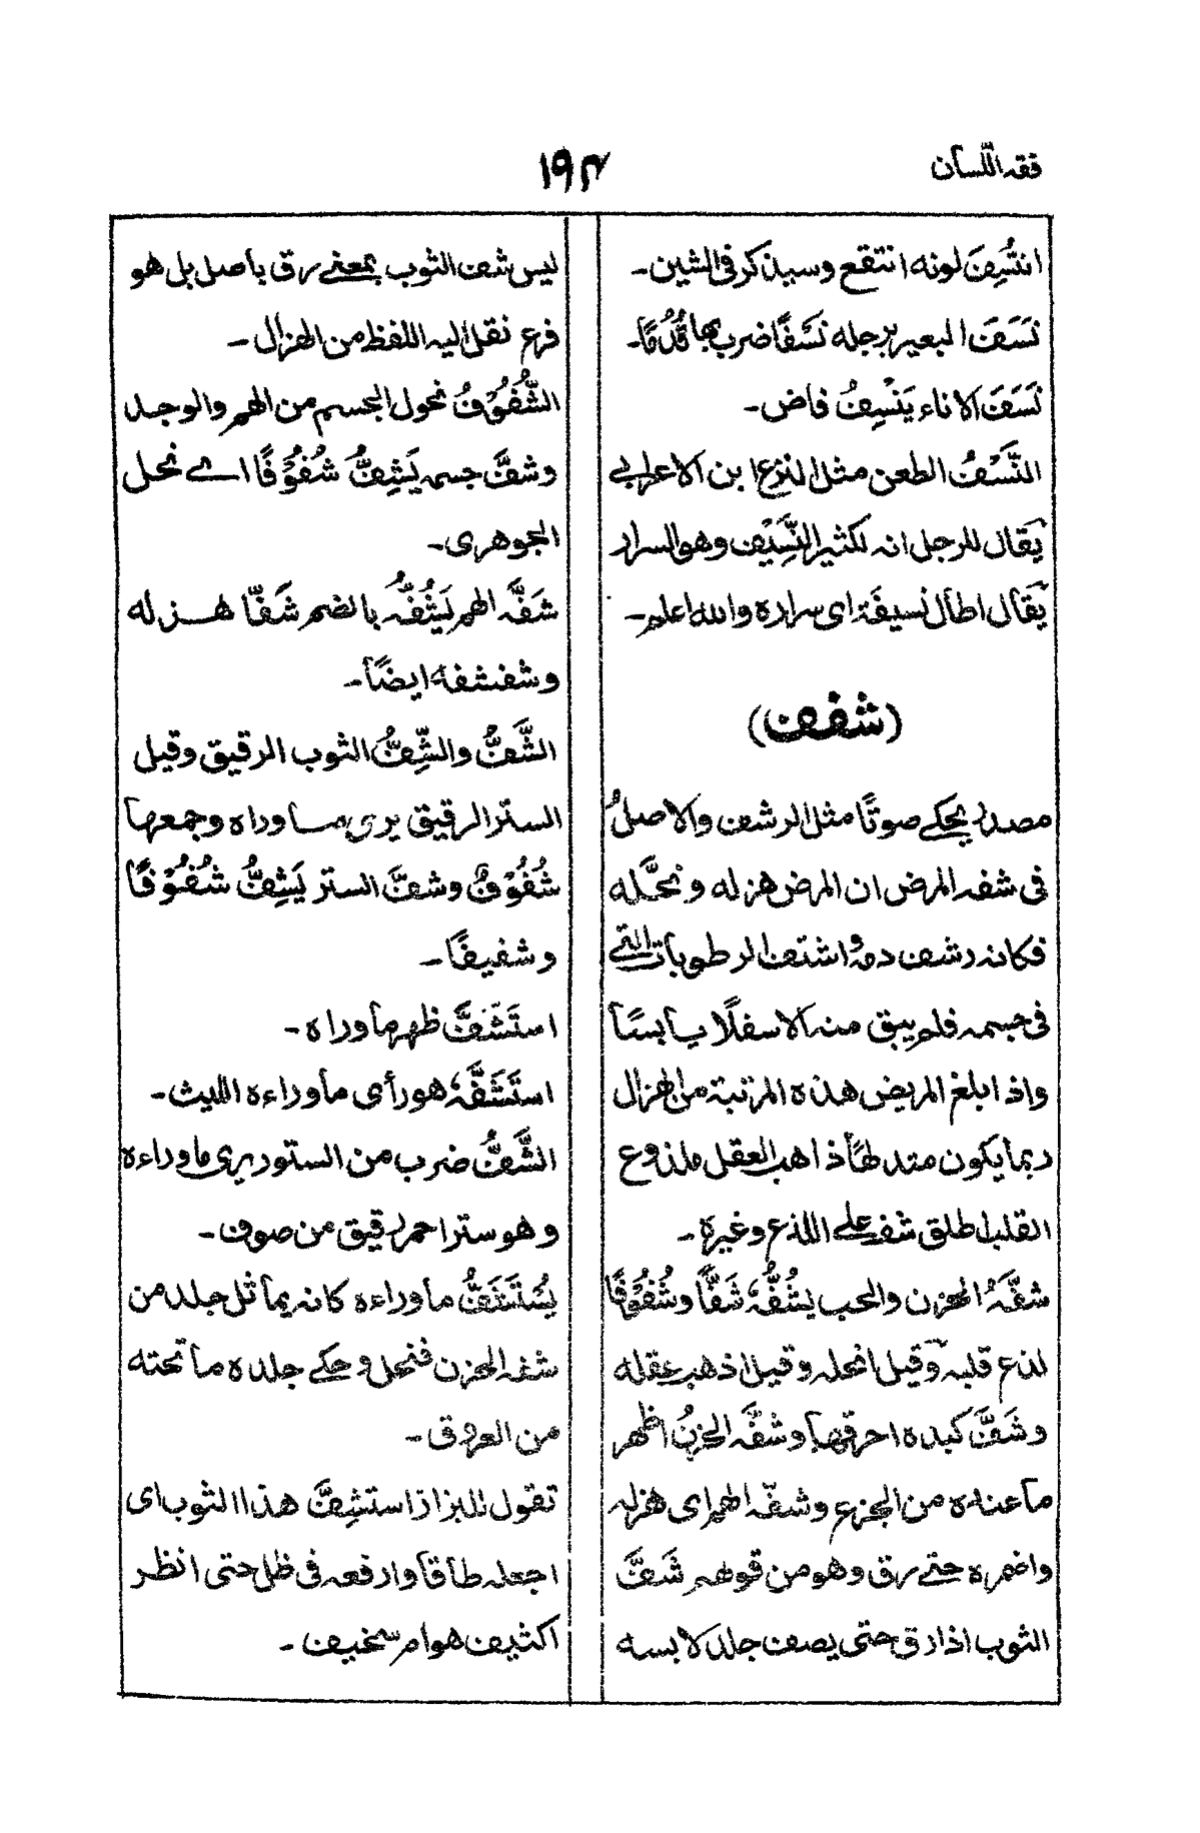 فقه اللّسان
١٩٤
انتُسِفَ لونه انتقع وسيذكر فى الشين۔
نَسَفَ البعير برجله نَسْفًا ضرب بها قُدُمًا۔
نَسَفَ الاناء يَنْسِفُ فاض۔
النَّسْفُ الطعن مثل النزع ابن الاعرابي
يقال للرجل انه لكثير النَّسِيْف وهو السرار
يقال اطال نسيفَة اى سراره والله اعلم۔
(شفف)
مصدر يحكي صوتًا مثل الرشف والاصلُ
فى شفه المرض ان المرض هزله ونحَّله
فكانه رشف دمه واشتف الرطوبات التي
فى جسمه فلم يبق منه الا سفلًا يابسًا
واذا بلغ المريض هذه المرتبة من الهزال
ربما يكون متدلهًا ذاهب العقل ملذوع
القلب اطلق شفه علي اللذع وغيره۔
شفَّهُ الحزن والحب يشُفُّهُ شَفًّا وشُفُوْفًا
لذع قلبه وقيل انحله وقيل اذهب عقله
وشَفَّ كبده احرقها وشفَّه الحزنُ اظهر
ما عنده من الجزع وشفّه الهم اى هزله
واضمره حتي رق وهو من قولهم شَفَّ
الثوب اذا رق حتى يصف جلد لابسه
ليس شف الثوب بمعني رق باصل بل هو
فرع نقل اليه اللفظ من الهزال۔
الشُّفُوْفُ نحول الجسم من الهم والوجد
وشفَّ جسمه يَشِفُّ شُفُوْفًا اے نحل
الجوهرى۔
شَفَّه الهم يَشُفُّه بالضم شَفًّا هزله
وشفشفه ايضًا۔
الشَّفُّ والشِّفُّ الثوب الرقيق وقيل
الستر الرقيق يرى ما وراه وجمعها
شُفُوْفٌ وشفَّ الستر يَشِفُّ شُفُوْفًا
وشفيفًا۔
استَشَفَّ ظهر ما وراه۔
استَشَفَّهُ هو رأى ما وراءه الليث۔
الشَّفُّ ضرب من الستور يرى ما وراءه
وهو ستر احمر رقيق من صوف۔
يُسْتَشَفُّ ما وراءه كانه يماثل جلد من
شفه الحزن فنحل وحكي جلده ما تحته
من العروق۔
تقول للبزاز استشِفَّ هذا الثوب اى
اجعله طاقا وارفعه فى ظل حتى انظر
اكثيف هو ام سخيف۔